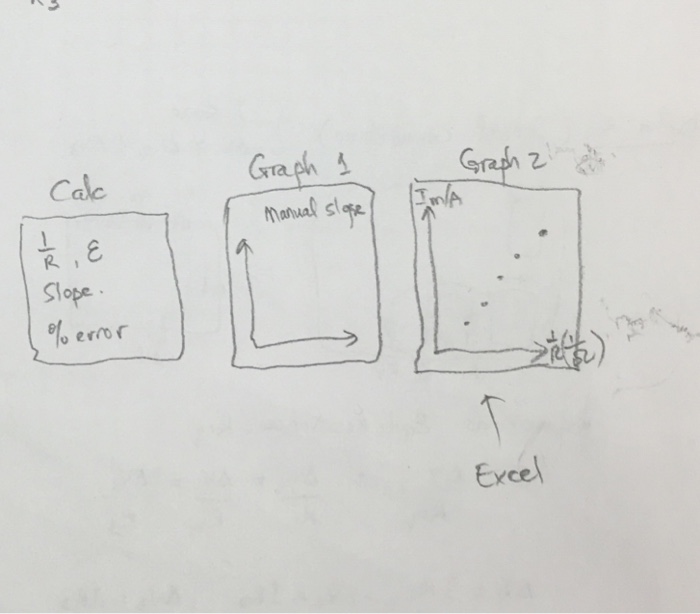 Calc
1/R , ε
Slope.
% error
Graph 1
Manual slope
Graph 2
I m/A
1/R (1/Ω)
Excel